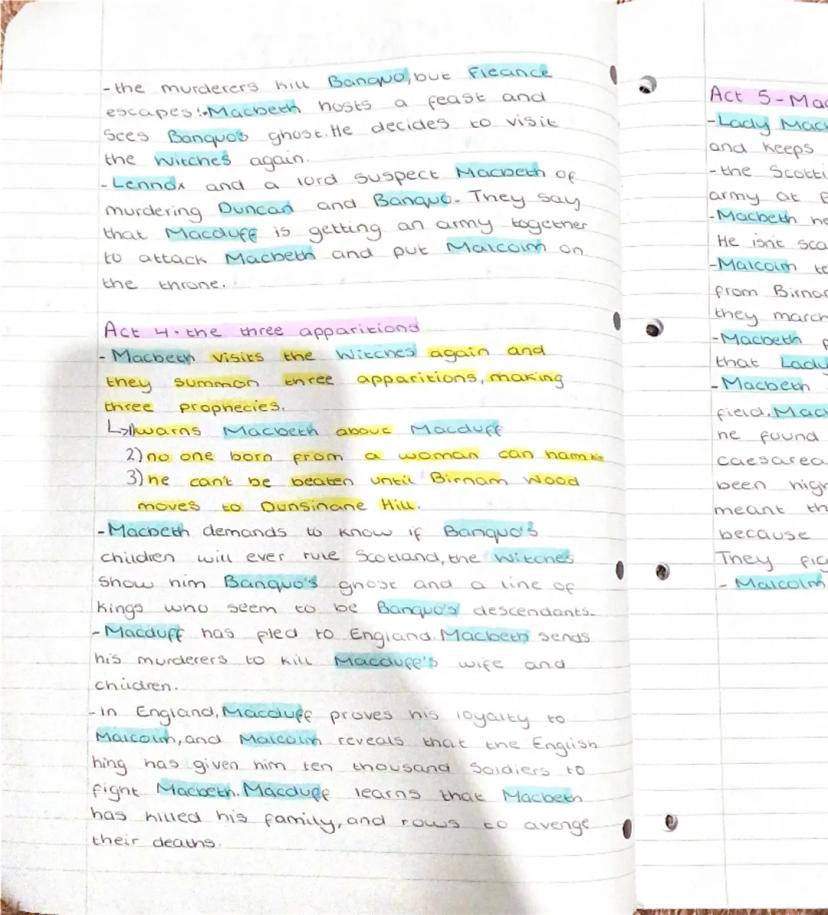 -the murderers kill Banquo, but Fleance
escapes. Macbeth hosts a feast and
sees Banquo's ghost. He decides to visit
the Witches again.
-Lennox and a lord suspect Macbeth of
murdering Duncan and Banquo. They say
that Macduff is getting an army together
to attack Macbeth and put Malcolm on
the throne.
Act 4-the three apparitions
-Macbeth visits the Witches again and
they summon three apparitions, making
three prophecies.
↳1)warns Macbeth above Macduff
2)no one born from a woman can harm him
3)he can't be beaten until Birnam Wood
moves to Dunsinane Hill.
-Macbeth demands to know if Banquo's
children will ever rule Scotland, the Witches
show him Banquo's ghost and a line of
kings who seem to be Banquo's descendants.
-Macduff has fled to England. Macbeth sends
his murderers to kill Macduff's wife and
children.
-In England, Macduff proves his loyalty to
Malcolm, and Malcolm reveals that the English
king has given him ten thousand soldiers to
fight Macbeth. Macduff learns that Macbeth
has killed his family, and vows to avenge
their deaths.
Act 5-Mac
-Lady Mac
and keeps
-the Scotti
army at
-Macbeth he
He isn't sca
-Malcolm te
from Birna
they march
-Macbeth
that Lady
-Macbeth
field. Mac
he found
caesarea
been high
meant th
because
They fig
-Malcolm